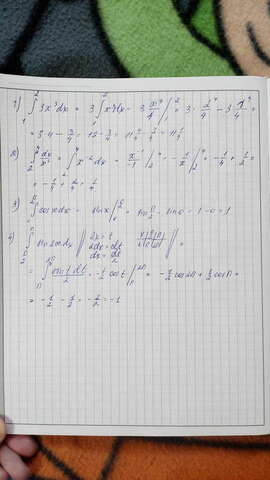 1) ∫₁² 3x³dx = 3∫₁² x³dx = 3 x⁴/4 |₁² = 3·2⁴/4 - 3·1⁴/4 =
= 3·4 - 3/4 = 12 - 3/4 = 11 4/4 - 3/4 = 11 1/4
2) ∫₂⁴ dx/x² = ∫₂⁴ x⁻² dx = x⁻¹/-1 |₂⁴ = -1/x |₂⁴ = -1/4 + 1/2 =
= -1/4 + 2/4 = 1/4
3) ∫ cos x dx = sin x | = sin π/2 - sin 0 = 1 - 0 = 1
4) ∫ sin 2x dx || 2x = t
2dx = dt
dx = dt/2 || =
= ∫ sin t dt/2 = -1/2 cos t | = -1/2 cos 2π + 1/2 cos π =
= -1/2 - 1/2 = -2/2 = -1